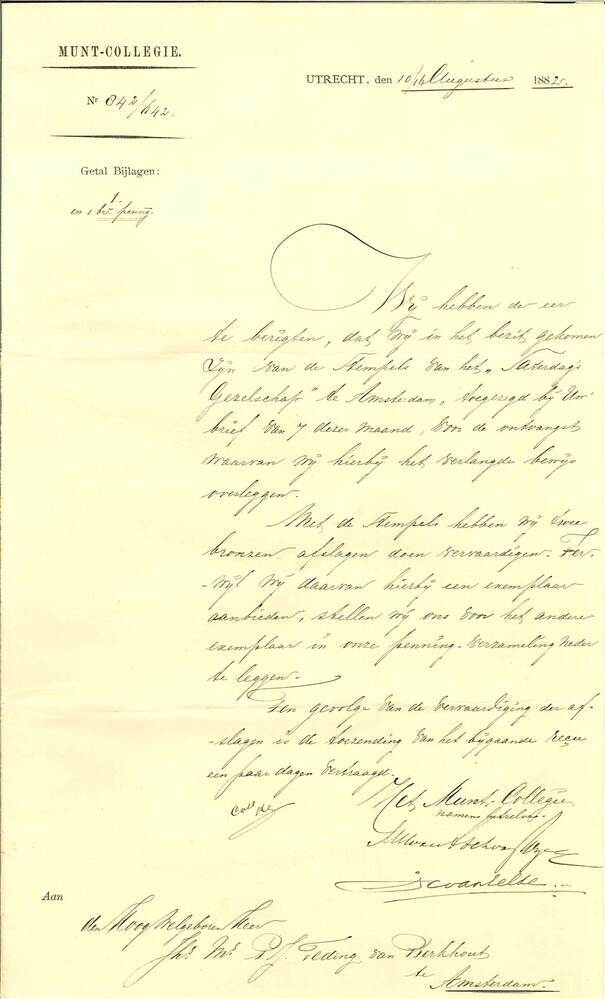 MUNT-COLLEGIE.
UTRECHT, den 10/16 Augustus 1882.
Nr 842/642.
Getal Bijlagen:
1.
en 1 br. penng.
Wij hebben de eer
te berigten, dat wij in het bezit gekomen
zijn van de Stempels van het „Saterdags
Gezelschap" te Amsterdam, toegezegd bij Uw
brief van 7 dezer maand, voor de ontvangst
waarvan wij hierbij het verlangde bewijs
overleggen.
Met de Stempels hebben wij twee
bronzen afslagen doen vervaardigen. Ter-
-wijl wij daarvan hierbij een exemplaar
aanbieden, stellen wij ons voor het andere
exemplaar in onze penning-verzameling neder
te leggen.
Ten gevolge van de vervaardiging der af-
-slagen is de toezending van het bijgaande reçu
een paar dagen vertraagd.
Het Munt-Collegie,
Coll
Aan
den Hoog Welgeboren Heer
Jhr. Mr. P. J. Teding van Berkhout
te
Amsterdam.